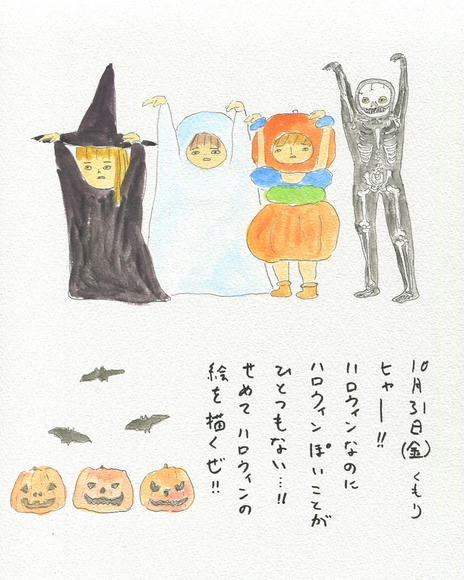 10月31日(金)くもり
ヒャー!!
ハロウィンなのに
ハロウィンぽいことが
ひとつもない…!!
せめてハロウィンの
絵を描くぜ!!